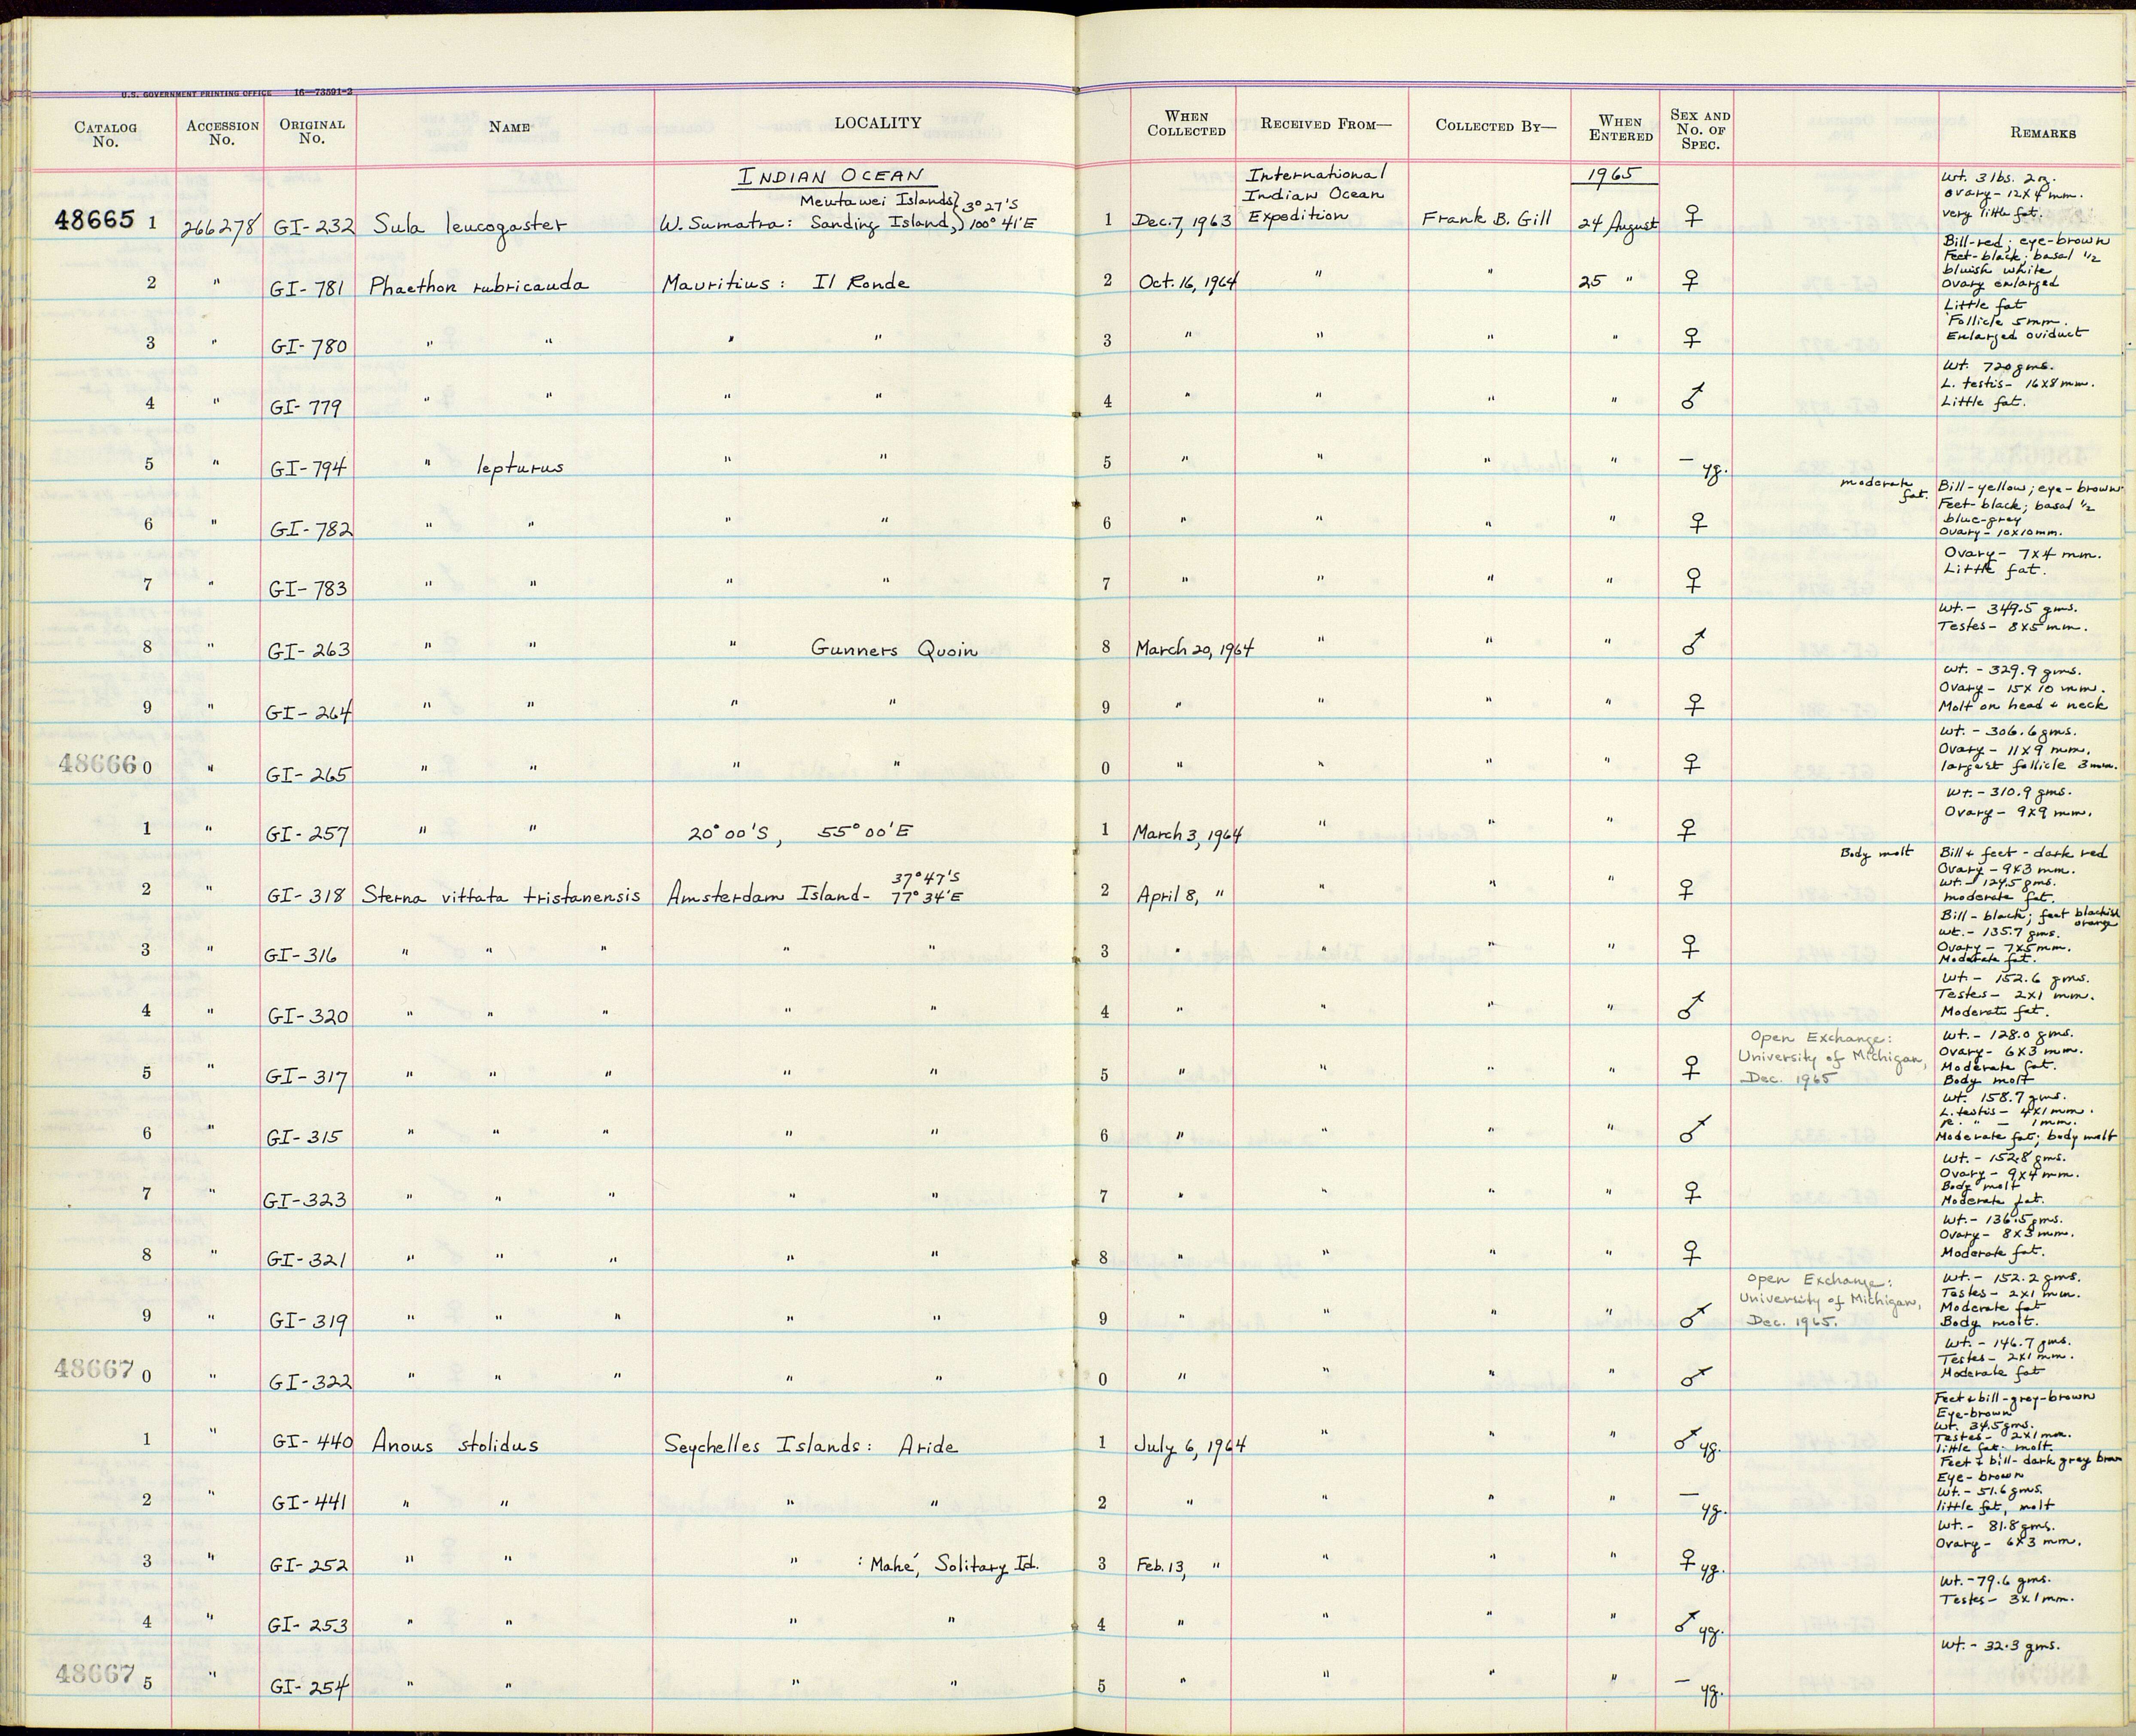 U.S. GOVERNMENT PRINTING OFFICE 16—73591-2
CATALOG No. ACCESSION No. ORIGINAL No. NAME LOCALITY WHEN COLLECTED RECEIVED FROM— COLLECTED BY— WHEN ENTERED SEX AND No. OF SPEC. REMARKS
INDIAN OCEAN International Indian Ocean Expedition 1965
48665 1 266278 GI-232 Sula leucogaster W. Sumatra: Mentawei Islands, Sanding Island, 3° 27'S 100° 41'E 1 Dec. 7, 1963 Frank B. Gill 24 August ♀ Wt. 3 lbs. 2 oz. Ovary - 12 x 4 mm. very little fat.
2 " GI-781 Phaethon rubricauda Mauritius: Il Ronde 2 Oct. 16, 1964 " " 25 " ♀ Bill-red; eye-brown Feet-black; basal 1/2 bluish white Ovary enlarged
3 " GI-780 " " " " 3 " " " " ♀ Little fat Follicle 5 mm. Enlarged oviduct
4 " GI-779 " " " " 4 " " " " ♂ Wt. 720 gms. L. testis- 16x8 mm. Little fat.
5 " GI-794 " lepturus " " 5 " " " " — yg.
6 " GI-782 " " " " 6 " " " " ♀ moderate fat. Bill-yellow; eye-brown Feet-black; basal 1/2 blue-grey Ovary - 10x10 mm.
7 " GI-783 " " " " 7 " " " " ♀ Ovary - 7x4 mm. Little fat.
8 " GI-263 " " " Gunners Quoin 8 March 20, 1964 " " " ♂ Wt. - 349.5 gms. Testes- 8x5 mm.
9 " GI-264 " " " " 9 " " " " ♀ Wt. - 329.9 gms. Ovary - 15x10 mm. Molt on head + neck
48666 0 " GI-265 " " " " 0 " " " " ♀ Wt. - 306.6 gms. Ovary - 11x9 mm. largest follicle 3 mm.
1 " GI-257 " " 20° 00'S, 55° 00'E 1 March 3, 1964 " " " ♀ Wt. - 310.9 gms. Ovary - 9x9 mm.
2 " GI-318 Sterna vittata tristanensis Amsterdam Island - 37° 47'S 77° 34'E 2 April 8, " " " " ♀ Body molt Bill + feet - dark red Ovary - 9x3 mm. Wt. - 124.5 gms. moderate fat.
3 " GI-316 " " " " " 3 " " " " ♀ Bill - black; feet blackish orange Wt. - 135.7 gms. Ovary - 7x5 mm. Moderate fat.
4 " GI-320 " " " " " 4 " " " " ♂ Wt. - 152.6 gms. Testes - 2x1 mm. Moderate fat.
5 " GI-317 " " " " " 5 " " " " ♀ Open Exchange: University of Michigan, Dec. 1965 Wt. - 128.0 gms. Ovary - 6x3 mm. Moderate fat. Body molt
6 " GI-315 " " " " " 6 " " " " ♂ Wt. 158.7 gms. L. testis - 4x1 mm. R. " — 1 mm. Moderate fat; body molt
7 " GI-323 " " " " " 7 " " " " ♀ Wt. - 152.8 gms. Ovary - 9x4 mm. Body molt Moderate fat.
8 " GI-321 " " " " " 8 " " " " ♀ Wt. - 136.5 gms. Ovary - 8x3 mm. Moderate fat.
9 " GI-319 " " " " " 9 " " " " ♂ Open Exchange: University of Michigan, Dec. 1965. Wt. - 152.2 gms. Testes - 2x1 mm. Moderate fat Body molt.
48667 0 " GI-322 " " " " " 0 " " " " ♂ Wt. - 146.7 gms. Testes - 2x1 mm. Moderate fat
1 " GI-440 Anous stolidus Seychelles Islands: Aride 1 July 6, 1964 " " " ♂ yg. Feet + bill - grey-brown Eye-brown Wt. 34.5 gms. Testes - 2x1 mm. little fat. molt.
2 " GI-441 " " " " 2 " " " " — yg. Feet + bill - dark grey brown Eye - brown Wt. - 51.6 gms. little fat, molt
3 " GI-252 " " " : Mahé, Solitary Id. 3 Feb. 13, " " " " ♀ yg. Wt. - 81.8 gms. Ovary - 6x3 mm.
4 " GI-253 " " " " 4 " " " " ♂ yg. Wt. - 79.6 gms. Testes - 3x1 mm.
48667 5 " GI-254 " " " " 5 " " " " — yg. Wt. - 32.3 gms.